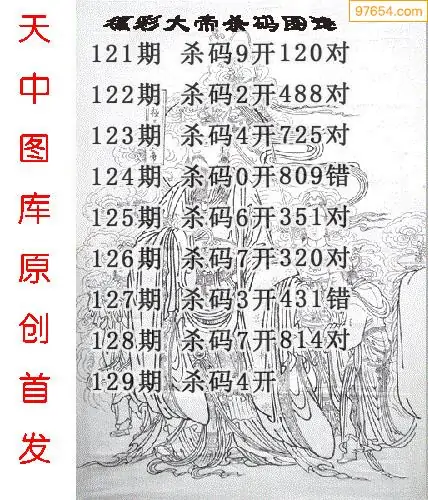 97654.com
福彩大帝杀码图谜
121期 杀码9开120对
122期 杀码2开488对
123期 杀码4开725对
124期 杀码0开809错
125期 杀码6开351对
126期 杀码7开320对
127期 杀码3开431错
128期 杀码7开814对
129期 杀码4开
天中图库原创首发